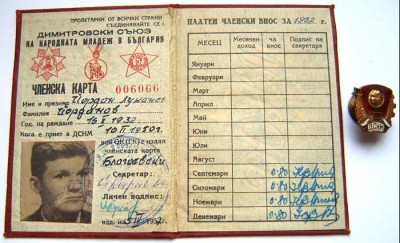 ПРОЛЕТАРИИ ОТ ВСИЧКИ СТРАНИ
СЪЕДИНЯВАЙТЕ СЕ!
ДИМИТРОВСКИ СЪЮЗ
НА НАРОДНАТА МЛАДЕЖ В БЪЛГАРИЯ
ЧЛЕНСКА КАРТА
006066
Име и презиме Йордан Луканов
Фамилия Йорданов
Год. на раждане 16 X 1932
Кога е приет в ДСНМ
10 II 1950 г.
членската карта
Секретар:
Личен подпис:
ПЛАТЕН ЧЛЕНСКИ ВНОС ЗА 1952 г.
МЕСЕЦ Месечен доход Чл. внос Подпис на секретаря
Януари
Февруари
Март
Април
Май
Юни
Юли
Август
Септември 0·80
Октомври 0·80
Ноември 0·80
Декември 0·80